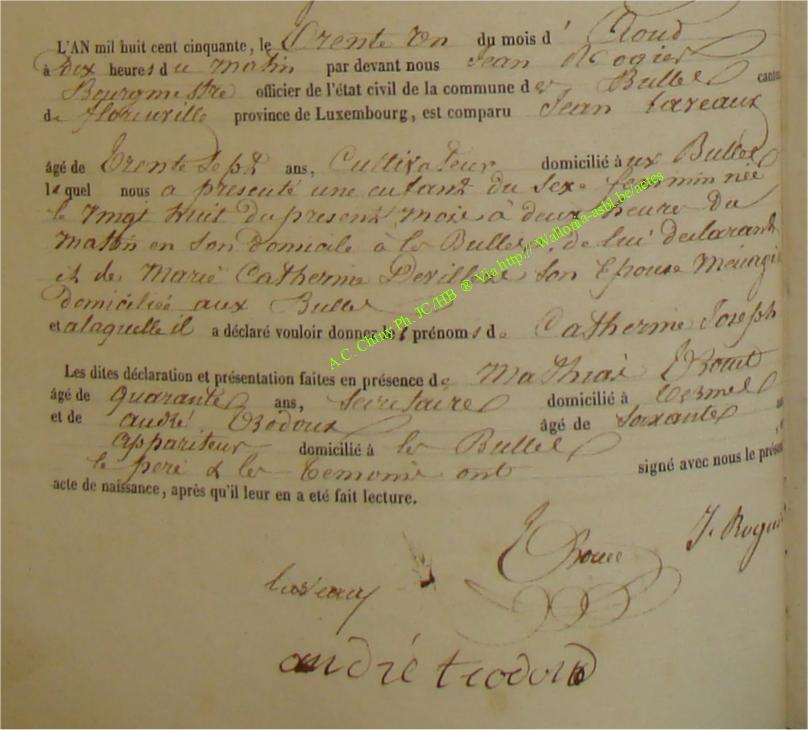 L'AN mil huit cent cinquante, le Trente un du mois d' Aoud
à Dix heures du matin par devant nous Jean Rogier
Bourgmestre officier de l'état civil de la commune des Bulles canto
de florenville province de Luxembourg, est comparu Jean Laveaux
âgé de Trente Sept ans, Cultivateur domicilié aux Bulles
lequel nous a presenté une enfant du sexe feminin née
le vingt huit du present mois à deux heure du
matin en son domicile à les Bulles de lui declarant
et de Marie Catherine Devillez son Epouse Menagè
domiciliée aux Bulles
et alaquelle il a déclaré vouloir donner les prénoms de Catherine Joseph
Les dites déclaration et présentation faites en présence de Mathias
âgé de quarante ans, Secretaire domicilié à termes
et de andré trodoux âgé de soixante an
appariteur domicilié à les Bulles
le pere & les temoins ont signé avec nous le présen
acte de naissance, après qu'il leur en a eté fait lecture.
J. Rogier
laveaux
andré trodoux
A.C. Chiny Ph. JC/HB ® Via http://wallonia-asbl.be/actes